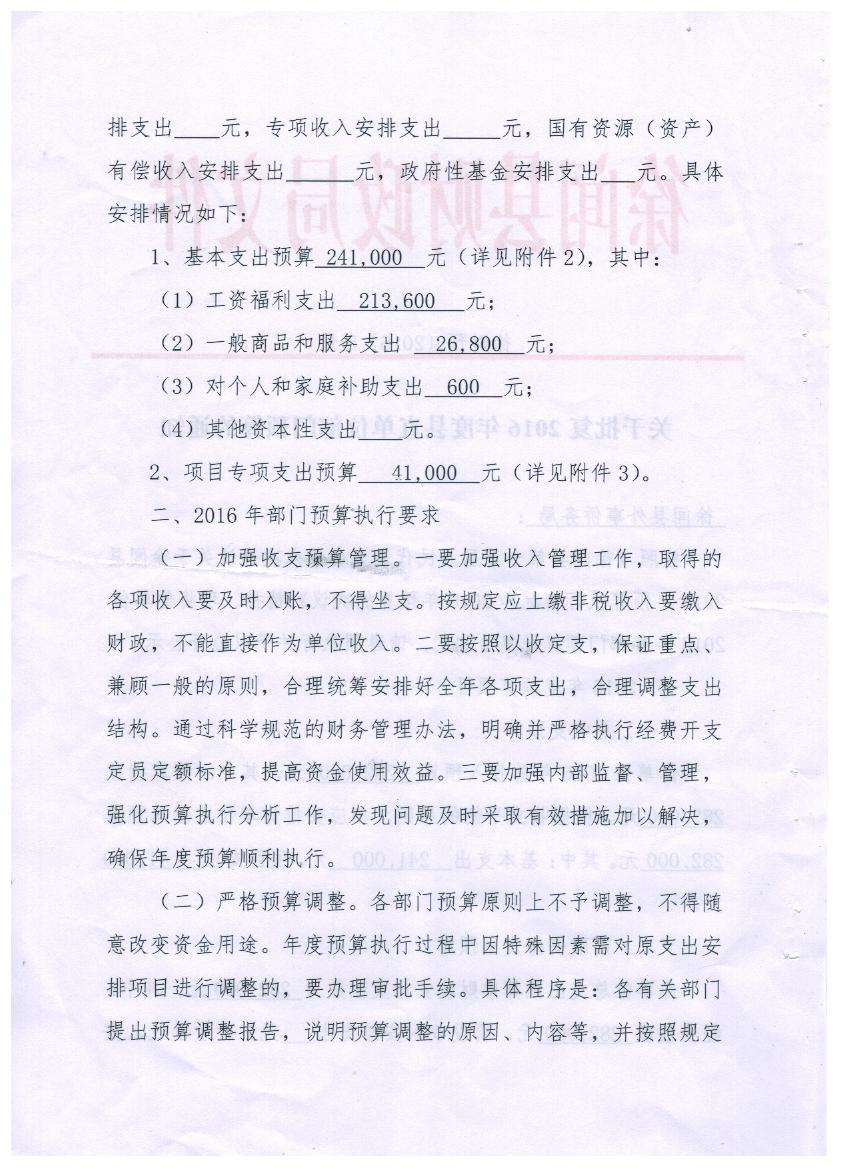 排支出____元，专项收入安排支出_____元，国有资源（资产）
有偿收入安排支出______元，政府性基金安排支出___元。具体
安排情况如下：
1、基本支出预算 241,000 元（详见附件2），其中：
（1）工资福利支出 213,600 元；
（2）一般商品和服务支出 26,800 元；
（3）对个人和家庭补助支出 600 元；
（4）其他资本性支出____元。
2、项目专项支出预算 41,000 元（详见附件3）。
二、2016年部门预算执行要求
（一）加强收支预算管理。一要加强收入管理工作，取得的
各项收入要及时入账，不得坐支。按规定应上缴非税收入要缴入
财政，不能直接作为单位收入。二要按照以收定支，保证重点、
兼顾一般的原则，合理统筹安排好全年各项支出，合理调整支出
结构。通过科学规范的财务管理办法，明确并严格执行经费开支
定员定额标准，提高资金使用效益。三要加强内部监督、管理，
强化预算执行分析工作，发现问题及时采取有效措施加以解决，
确保年度预算顺利执行。
（二）严格预算调整。各部门预算原则上不予调整，不得随
意改变资金用途。年度预算执行过程中因特殊因素需对原支出安
排项目进行调整的，要办理审批手续。具体程序是：各有关部门
提出预算调整报告，说明预算调整的原因、内容等，并按照规定